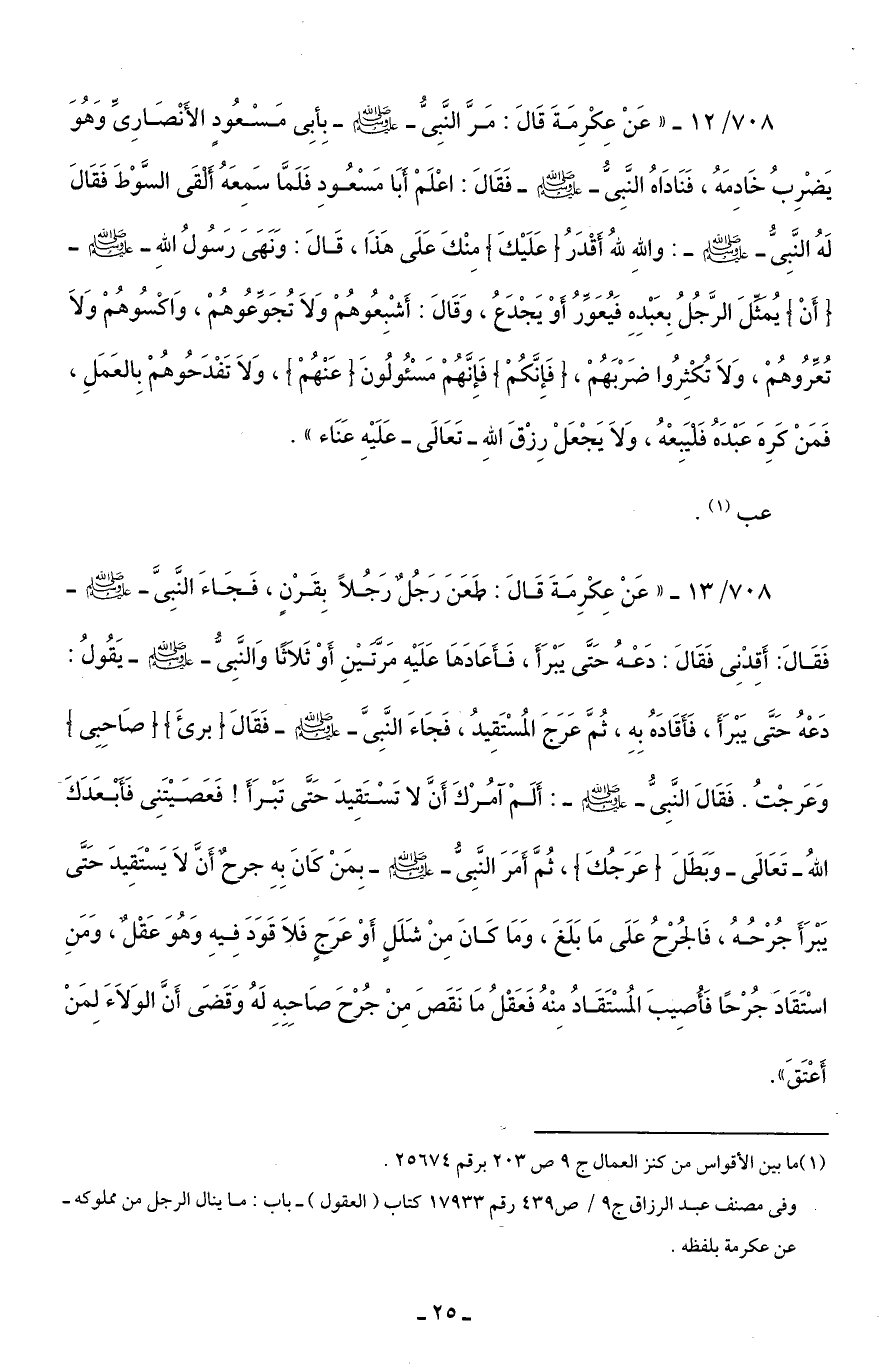 ١٢/٧٠٨ ـ « عَنْ عِكْرِمَةَ قَالَ : مَرَّ النَّبِىُّ ـ ﷺ ـ بِأَبِى مَسْعُودٍ الأَنْصَارِىِّ وَهُوَ
يَضْرِبُ خَادِمَهُ ، فَنَادَاهُ النَّبِىُّ ـ ﷺ ـ فَقَالَ : اعْلَمْ أَبَا مَسْعُودٍ فَلَمَّا سَمِعَهُ أَلْقَى السَّوْطَ فَقَالَ
لَهُ النَّبِىُّ ـ ﷺ ـ : والله للهُ أَقْدَرُ { عَلَيْكَ } مِنْكَ عَلَى هَذَا ، قَالَ : وَنَهَى رَسُولُ اللهِ ـ ﷺ ـ
{ أَنْ } يُمَثِّلَ الرَّجُلُ بِعَبْدِهِ فَيُعَوِّرُ أَوْ يَجْدَعُ ، وَقَالَ : أَشْبِعُوهُمْ وَلاَ تُجَوِّعُوهُمْ ، وَاكْسُوهُمْ وَلاَ
تُعَرُّوهُمْ ، وَلاَ تُكْثِرُوا ضَرْبَهُمْ ، { فَإِنَّكُمْ } فَإِنَّهُمْ مَسْئُولُونَ { عَنْهُمْ } ، وَلاَ تَفْدَحُوهُمْ بِالعَمَلِ ،
فَمَنْ كَرِهَ عَبْدَهُ فَلْيَبِعْهُ ، وَلاَ يَجْعَلْ رِزْقَ اللهِ ـ تَعَالَى ـ عَلَيْهِ عَنَاء » .
عب (١) .
١٣/٧٠٨ ـ « عَنْ عِكْرِمَةَ قَالَ : طَعَنَ رَجُلٌ رَجُلاً بِقَرْنٍ ، فَجَاءَ النَّبِىَّ ـ ﷺ ـ
فَقَالَ: أَقِدْنِى فَقَالَ : دَعْهُ حَتَّى يَبْرَأَ ، فَأَعَادَهَا عَلَيْهِ مَرَّتَيْنِ أَوْ ثَلاَثًا وَالنَّبِىُّ ـ ﷺ ـ يَقُولُ :
دَعْهُ حَتَّى يَبْرَأَ ، فَأَقَادَهُ بِهِ ، ثُمَّ عَرَجَ المُسْتَقِيدُ ، فَجَاءَ النَّبِىَّ ـ ﷺ ـ فَقَالَ { برئَ } { صَاحِبِى }
وَعَرجْتُ . فَقَالَ النَّبِىُّ ـ ﷺ ـ : أَلَمْ آمُرْكَ أَنَّ لا تَسْتَقِيدَ حَتَّى تَبْرَأَ ! فَعَصَيْتَنِى فَأَبْعَدَكَ
اللهُ ـ تَعَالَى ـ وَبَطَلَ { عَرَجُكَ } ، ثُمَّ أَمَرَ النَّبِىُّ ـ ﷺ ـ بِمَنْ كَانَ بِهِ جرحٌ أَنَّ لاَ يَسْتَقِيدَ حَتَّى
يَبْرَأَ جُرْحُهُ ، فَالجُرْحُ عَلَى مَا بَلَغَ ، وَمَا كَانَ مِنْ شَلَلٍ أَوْ عَرَجٍ فَلاَ قَوَدَ فِيهِ وَهُوَ عَقْلٌ ، وَمَنِ
اسْتَقَادَ جُرْحًا فَأُصِيبَ المُسْتَقَادُ مِنْهُ فَعَقْلُ مَا نَقَصَ مِنْ جُرْحِ صَاحِبِهِ لَهُ وَقَضَى أَنَّ الوَلاَءَ لِمَنْ
أَعْتَقَ».
(١)ما بين الأقواس من كنز العمال ج ٩ ص ٢٠٣ برقم ٢٥٦٧٤ .
وفى مصنف عبد الرزاق ج٩ / ص٤٣٩ رقم ١٧٩٣٣ كتاب ( العقول ) ـ باب : ما ينال الرجل من مملوكه ـ
عن عكرمة بلفظه .
ـ ٢٥ ـ